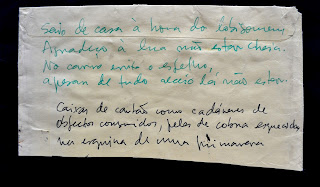 Saio de casa à hora do lobisomem.
Agradeço à lua não estar cheia.
No carro evito o espelho,
apesar de tudo receio lá não estar.
Caixas de cartão como cadáveres de
objectos consumidos, peles de cobra esquecidas
na esquina de uma primavera